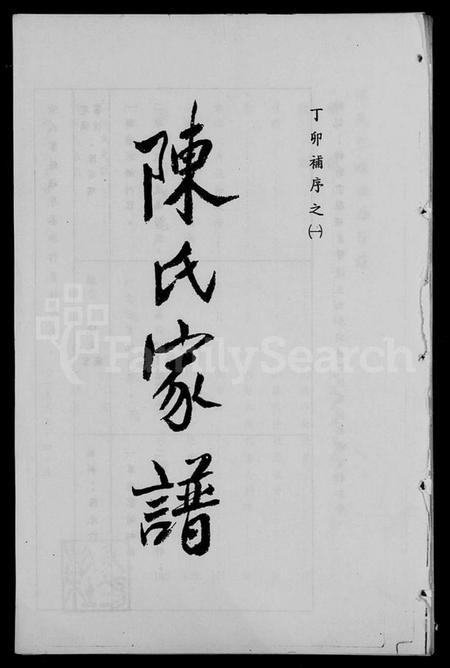 丁卯補序之㈠
陳氏家譜
FamilySearch